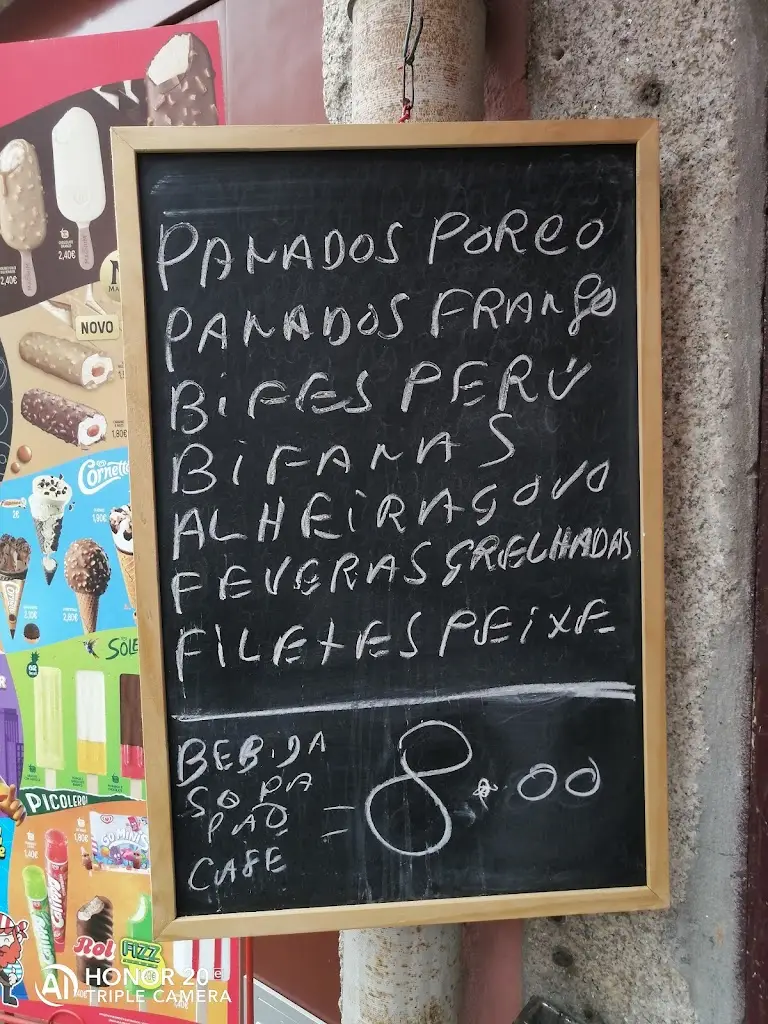 PANADOS PORCO
PANADOS FRANGO
BIFES PERÚ
BIFANAS
ALHEIRAGOVO
FEVERAS GRELHADAS
FILETES PEIXE
BEBIDA
SOPA
PAO
CAFE
= 8.00
NOVO
2,40€
2,40€
1,80€
Cornetto
2€
1,80€
2,10€
2,80€
SOLE
PICOLE
1,40€
1,80€
GO MINIS
Calippo
Rol
FIZZ
HONOR 20
TRIPLE CAMERA